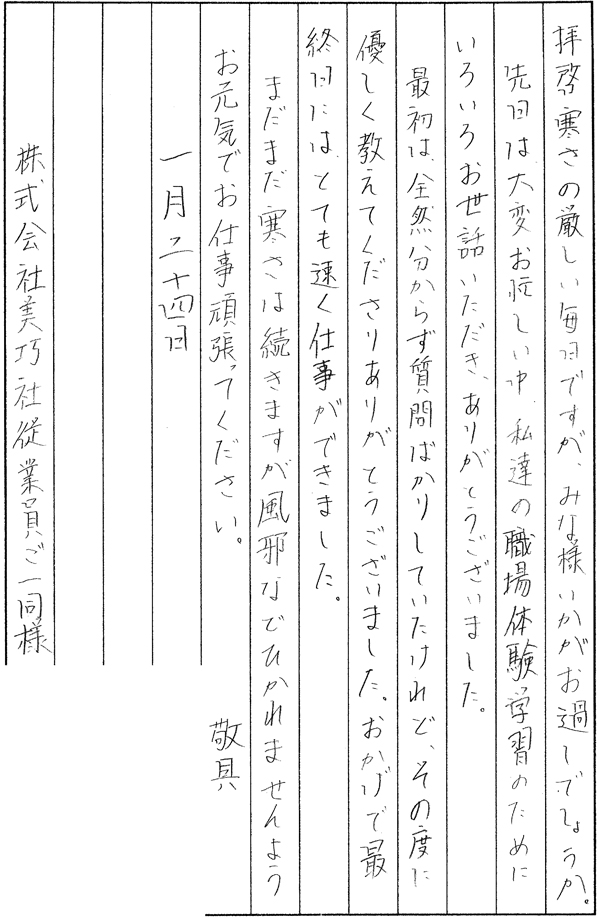 拝啓寒さの厳しい毎日ですが、みな様いかがお過しでしょうか。
先日は、大変お忙しい中、私達の職場体験学習のために
いろいろお世話いただき、ありがとうございました。
最初は、全然分からず質問ばかりしていたけれど、その度に
優しく教えてくださりありがとうございました。おかげで最
終日には、とても速く仕事ができました。
まだまだ寒さは続きますが風邪などひかれませんよう
お元気でお仕事頑張ってください。
敬具
一月二十四日
株式会社美巧社従業員ご一同様